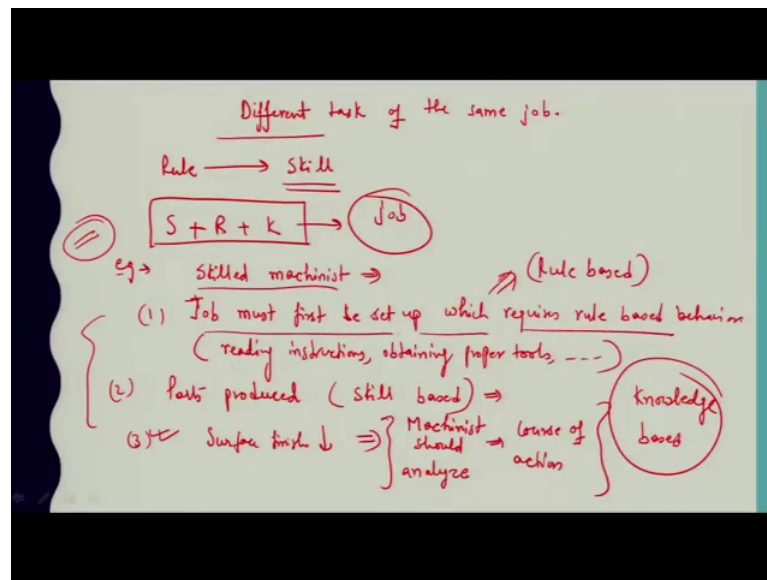 Different task of the same job.
Rule → Skill
S + R + K → Job
eg → Skilled machinist ⇒
(Rule based)
(1) Job must first be set up which requires rule based behavior
(reading instructions, obtaining proper tools, ----)
(2) Parts produced (Skill based) ⇒
(3) Surface finish ↓ ⇒ { Machinist should analyze → Course of action } Knowledge based